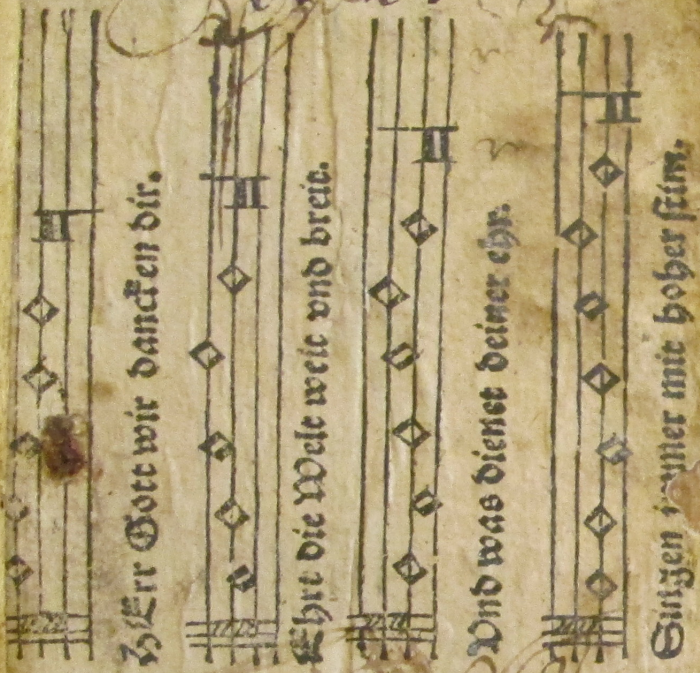 HErr Gott wir dancken dir.
Ehrt die Welt weit vnd breit.
Vnd was dienet deiner ehr.
Singen immer mit hoher stim.